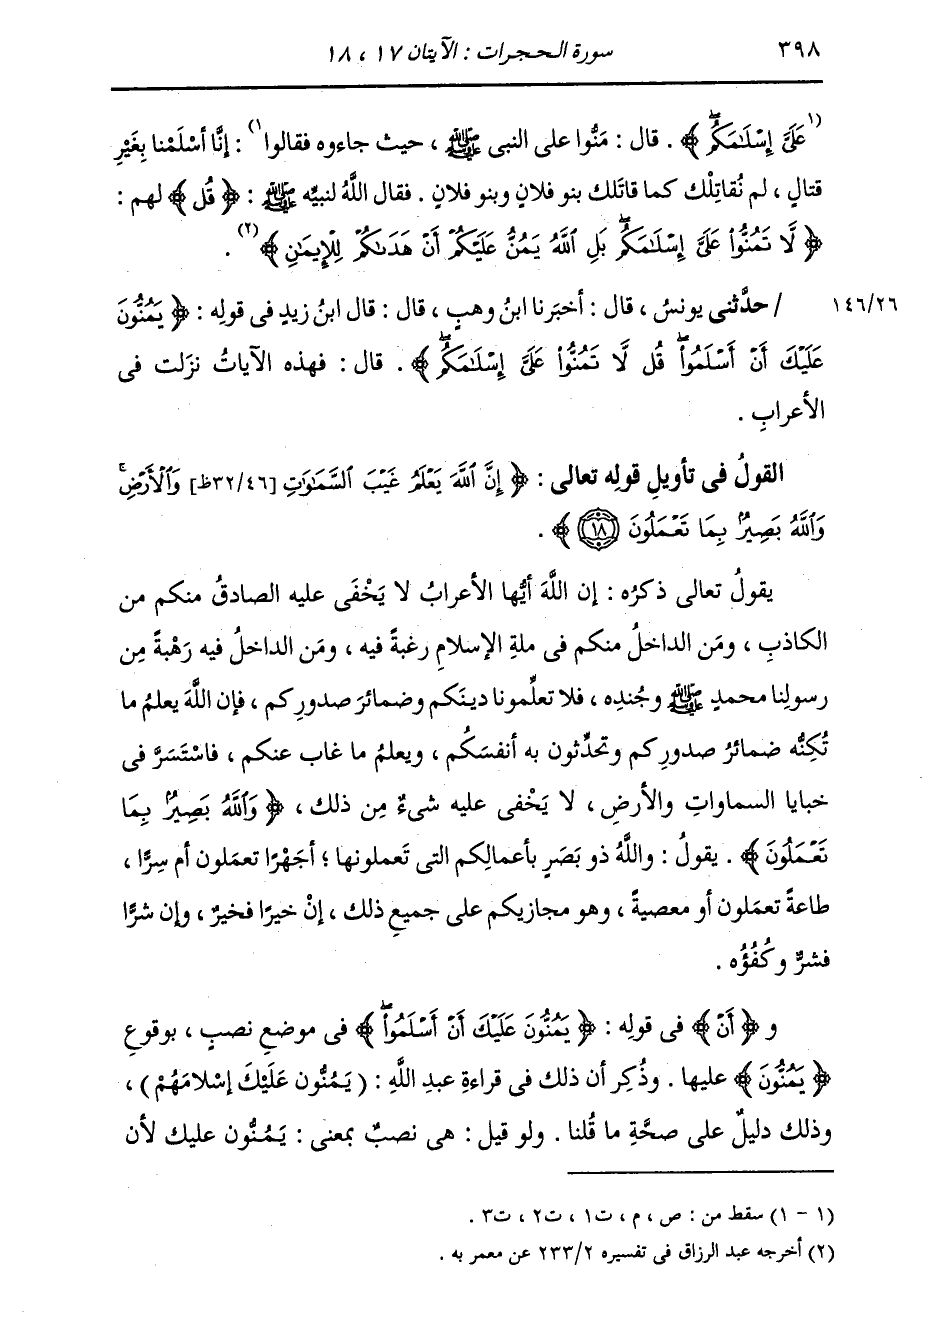 ٣٩٨ سورة الحجرات : الآيتان ١٧ ، ١٨
(١عَلَىَّ إِسْلَٰمَكُمْ ﴾ . قال : مَنُّوا على النبى ﷺ ، حيث جاءوه فقالوا١) : إنَّا أسْلَمْنا بِغَيْرِ
قتالٍ ، لم نُقاتِلْك كما قاتَلك بنو فلانٍ وبنو فلانٍ . فقال اللَّهُ لنبيِّه ﷺ : ﴿ قُل ﴾ لهم :
﴿ لَّا تَمُنُّوا۟ عَلَىَّ إِسْلَٰمَكُم ۖ بَلِ ٱللَّهُ يَمُنُّ عَلَيْكُمْ أَنْ هَدَىٰكُمْ لِلْإِيمَٰنِ ﴾(٢) .
١٤٦/٢٦ / حدَّثنى يونسُ ، قال : أخبَرنا ابنُ وهبٍ ، قال : قال ابنُ زيدٍ فى قولِه : ﴿ يَمُنُّونَ
عَلَيْكَ أَنْ أَسْلَمُوا۟ ۖ قُل لَّا تَمُنُّوا۟ عَلَىَّ إِسْلَٰمَكُم ۖ ﴾ . قال : فهذه الآياتُ نزَلت فى
الأعرابِ .
القولُ فى تأويلِ قولِه تعالى : ﴿ إِنَّ ٱللَّهَ يَعْلَمُ غَيْبَ ٱلسَّمَٰوَٰتِ [٣٢/٤٦ظ] وَٱلْأَرْضِ ۚ
وَٱللَّهُ بَصِيرٌۢ بِمَا تَعْمَلُونَ ١٨ ﴾ .
يقولُ تعالى ذكرُه : إن اللَّهَ أيُّها الأعرابُ لا يَخْفَى عليه الصادقُ منكم من
الكاذبِ ، ومَن الداخلُ منكم فى ملةِ الإسلامِ رغبةً فيه ، ومَن الداخلُ فيه رَهْبةً مِن
رسولِنا محمدٍ ﷺ وجُندِه ، فلا تعلِّمونا دينَكم وضمائرَ صدورِكم ، فإن اللَّهَ يعلمُ ما
تُكِنُّه ضمائرُ صدورِكم وتحدِّثون به أنفسَكُم ، ويعلمُ ما غاب عنكم ، فاسْتَسَرَّ فى
خبايا السماواتِ والأرضِ ، لا يَخْفى عليه شىءٌ مِن ذلك ، ﴿ وَٱللَّهُ بَصِيرٌۢ بِمَا
تَعْمَلُونَ ﴾ . يقولُ : واللَّهُ ذو بَصَرٍ بأعمالِكم التى تَعملونها ؛ أجَهْرًا تعمَلون أم سِرًّا ،
طاعةً تعمَلون أو معصيةً ، وهو مجازيكم على جميعِ ذلك ، إنْ خيرًا فخيرٌ ، وإن شرًّا
فشرٌّ وكُفُؤُه .
و ﴿ أَنْ ﴾ فى قولِه : ﴿ يَمُنُّونَ عَلَيْكَ أَنْ أَسْلَمُوا۟ ۖ ﴾ فى موضعِ نصبٍ ، بوقوعِ
﴿ يَمُنُّونَ ﴾ عليها . وذُكِر أن ذلك فى قراءةِ عبدِ اللَّهِ : ( يَمُنُّون عَلَيْكَ إسْلامَهُمْ ) ،
وذلك دليلٌ على صحَّةِ ما قُلنا . ولو قيل : هى نصبٌ بمعنى : يَمُنُّون عليك لأن
(١ - ١) سقط من : ص ، م ، ت١ ، ت٢ ، ت٣ .
(٢) أخرجه عبد الرزاق فى تفسيره ٢٣٣/٢ عن معمر به .